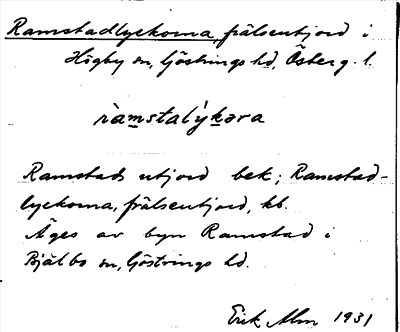 Ramstadlyckorna, frälseutjord i
Högby sn, Göstrings hd, Österg. l.
ràmstalýkəra
Ramstads utjord bek; Ramstad-
lyckorna, frälseutjord, kb.
Äges av byn Ramstad i
Bjälbo sn, Göstrings hd.
Erik Alm 1931